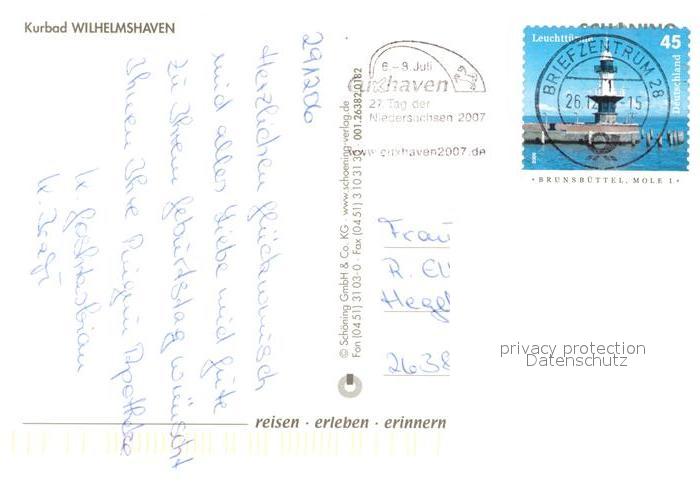 Kurbad WILHELMSHAVEN
29.12.06
Herzlichen Glückwunsch
und alles Liebe und Gute
zu Ihrem Geburtstag wünscht
Ihnen Ihre Pinguin Apotheke
© Schöning GmbH & Co. KG · www.schoening-verlag.de
Fon (0451) 3103-0 · Fax (0451) 310313 001.26382.0182
6.-8. Juli
Cuxhaven
27. Tag der
Niedersachsen 2007
www.cuxhaven2007.de
SCHÖNING
Leuchttürme 45
Deutschland
BRIEFZENTRUM 28
26.12 15
· BRUNSBÜTTEL, MOLE 1 ·
Frau
R.
Hegel
2638
privacy protection
Datenschutz
reisen · erleben · erinnern